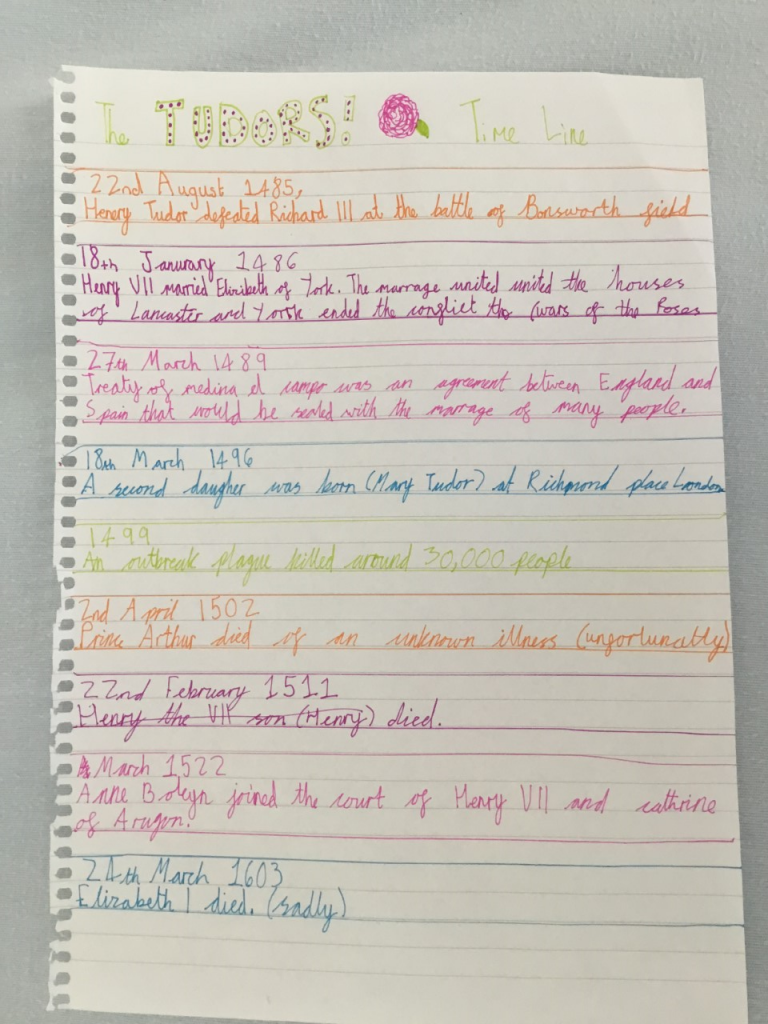 The TUDORS! Time Line
22nd August 1485,
Henery Tudor defeated Richard III at the battle of Bonsworth field
18th Janurary 1486
Henry VII married Elizibeth of York. The marrage united united the houses
of Lancaster and Yorsk ended the conflict the (wars of the Roses
27th March 1489
Treaty of medina el campo was an agreement between England and
Spain that would be sealed with the marrage of many people.
18th March 1496
A second daugher was born (Mary Tudor) at Richmond place London
1499
An outbreak plague killed around 30,000 people
2nd April 1502
Prince Arthur died of an unknown illness (unfortunatly)
22nd February 1511
Henry the VII son (Henry) died.
March 1522
Anne Boleyn joined the court of Henry VII and cathrine
of Aragon.
24th March 1603
Elizabeth I died. (sadly)